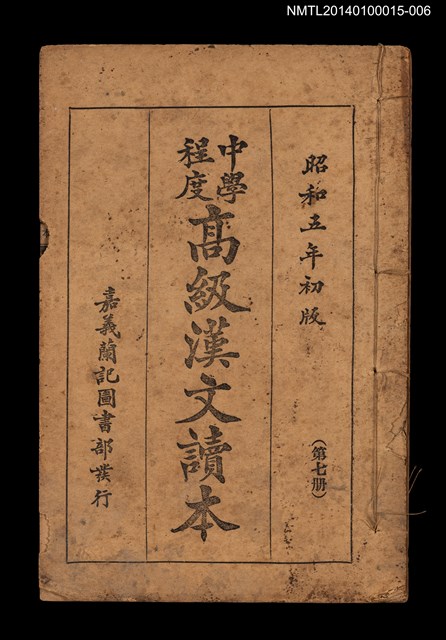 NMTL20140100015-006
昭和五年初版
（第七册）
中學程度
高級漢文讀本
嘉義蘭記圖書部發行